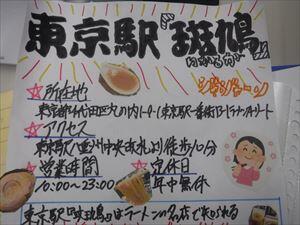 東京駅 斑鳩
☆所在地
東京都千代田区丸の内1-9-1 東京駅一番街B1ラーメンストリート
☆アクセス
東京駅八重洲中央改札より徒歩10分
☆営業時間
10:00〜23:00
☆定休日
年中無休
東京駅『斑鳩』はラーメンの名店で知られる